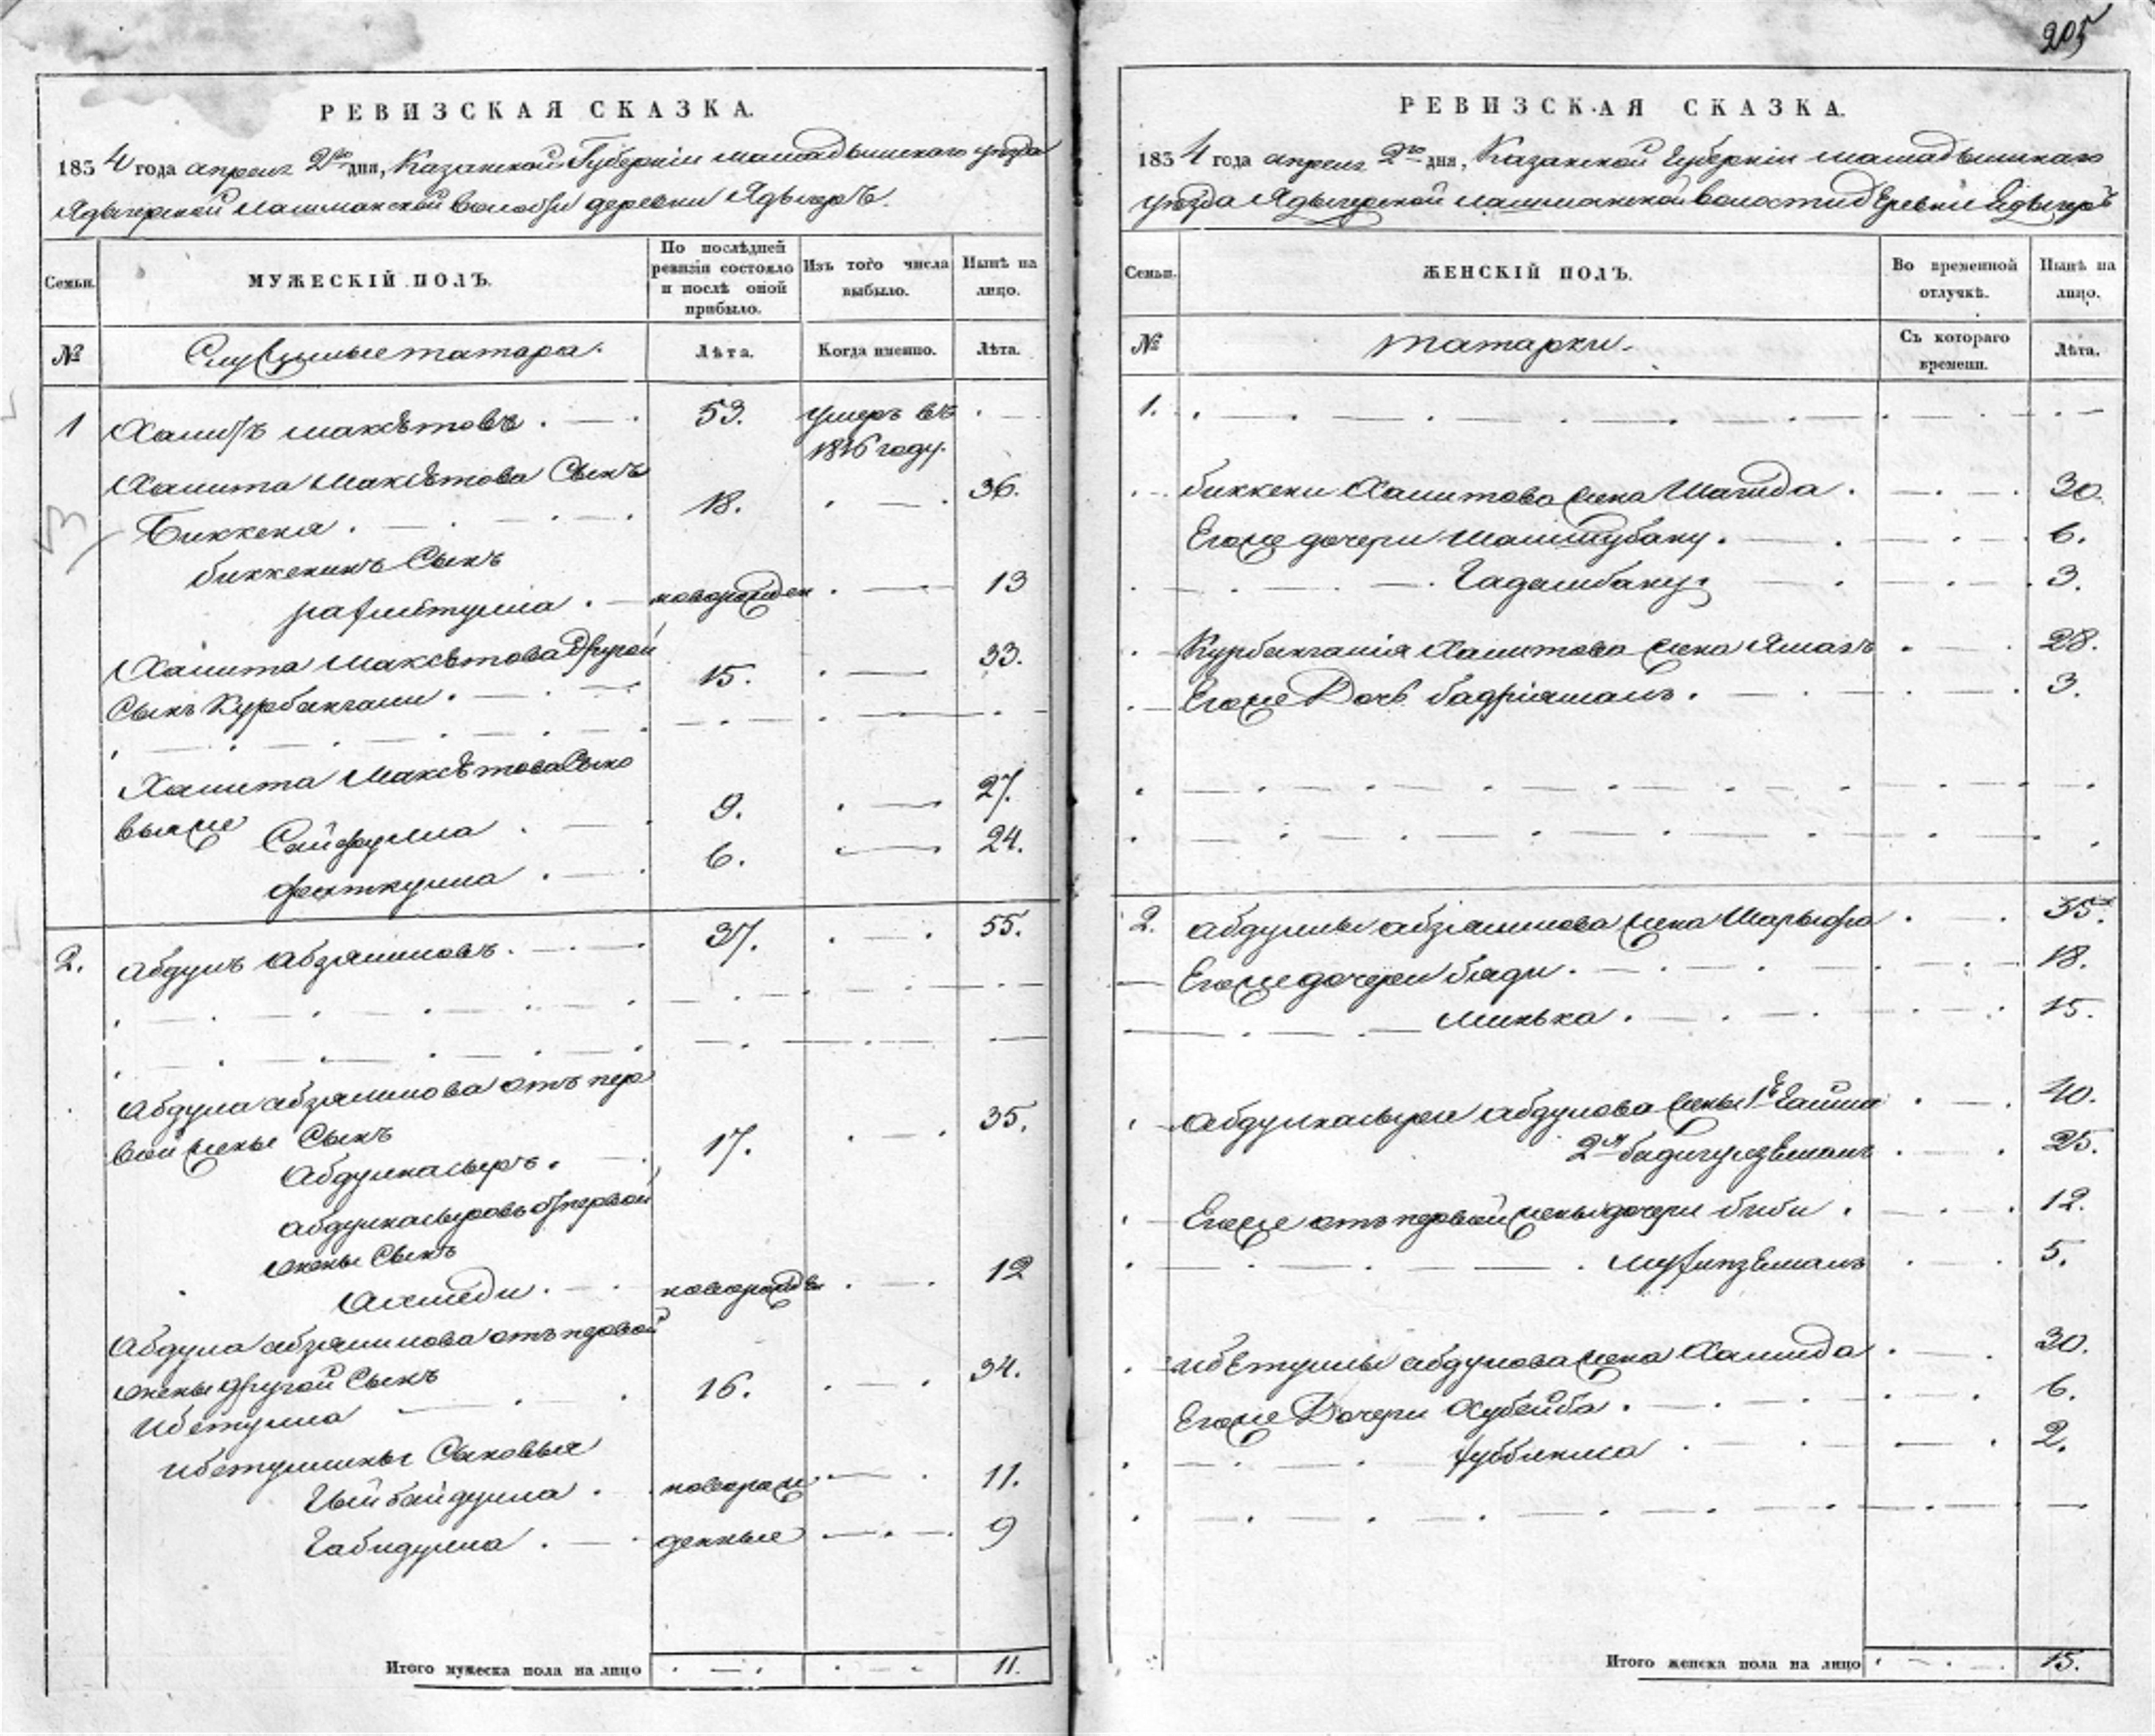 205
РЕВИЗСКАЯ СКАЗКА.
1834 года апреля 2го дня, Казанской Губернии мамадышского уезда
Ядыгерской лашманской волости деревни Ядыгеръ.
Семьи.
МУЖЕСКІЙ ПОЛЪ.
По послѣдней ревизіи состояло и послѣ оной прибыло.
Изъ того числа выбыло.
Нынѣ на лицо.
№
Служилые татара.
Лѣта.
Когда именно.
Лѣта.
1 Хамитъ Максютовъ 53. умеръ въ
1816 году.
Хамита Максютова Сынъ
Биккеня 18. 36.
биккенинъ Сынъ
новорожден 13
Хамита Максютова другой
Сынъ Курбангали 15. 33.
Хамита Максютова Сыно
вья же Сайфулла 9. 27.
фяткулла 6. 24.
2. Абдулъ абзялиловъ 37. 55.
Абдула абзялилова отъ пер
вой жены Сынъ
Абдулнасыръ 17. 35.
абдулнасыровъ от первой
жены Сынъ
Ахмеди новорожден 12
Абдула абзялилова отъ первой
жены другой Сынъ
Ибетулла 16. 34.
ибетуллины Сыновья
Убайдулла новорож 11.
Габидулла денные 9
Итого мужеска пола на лицо 11.
РЕВИЗСКАЯ СКАЗКА.
1834 года апреля 2го дня, Казанской Губерніи мамадышскаго
уезда Ядыгерской лашманской волости деревни Ядыгеръ
Семьи.
ЖЕНСКІЙ ПОЛЪ.
Во временной отлучкѣ.
Нынѣ на лицо.
№
татарки.
Съ котораго времени.
Лѣта.
1.
биккени Хамитова жена Шагида 30.
Егоже дочери 6.
3.
Курбангалія Хамитова жена 28.
Егоже Дочь бадріямалъ 3.
2. абдуллы абзялилова жена Шарыфа 35.
Егоже дочери бяди 18.
Минька 15.
Абдулнасыра абдулова жены 1е Гайша 40.
2я 25.
Егоже отъ первой жены дочери биби 12.
5.
ибетуллы абдулова жена Хамида 30.
Егоже Дочери Хубейба 6.
2.
Итого женска пола на лицо 15.